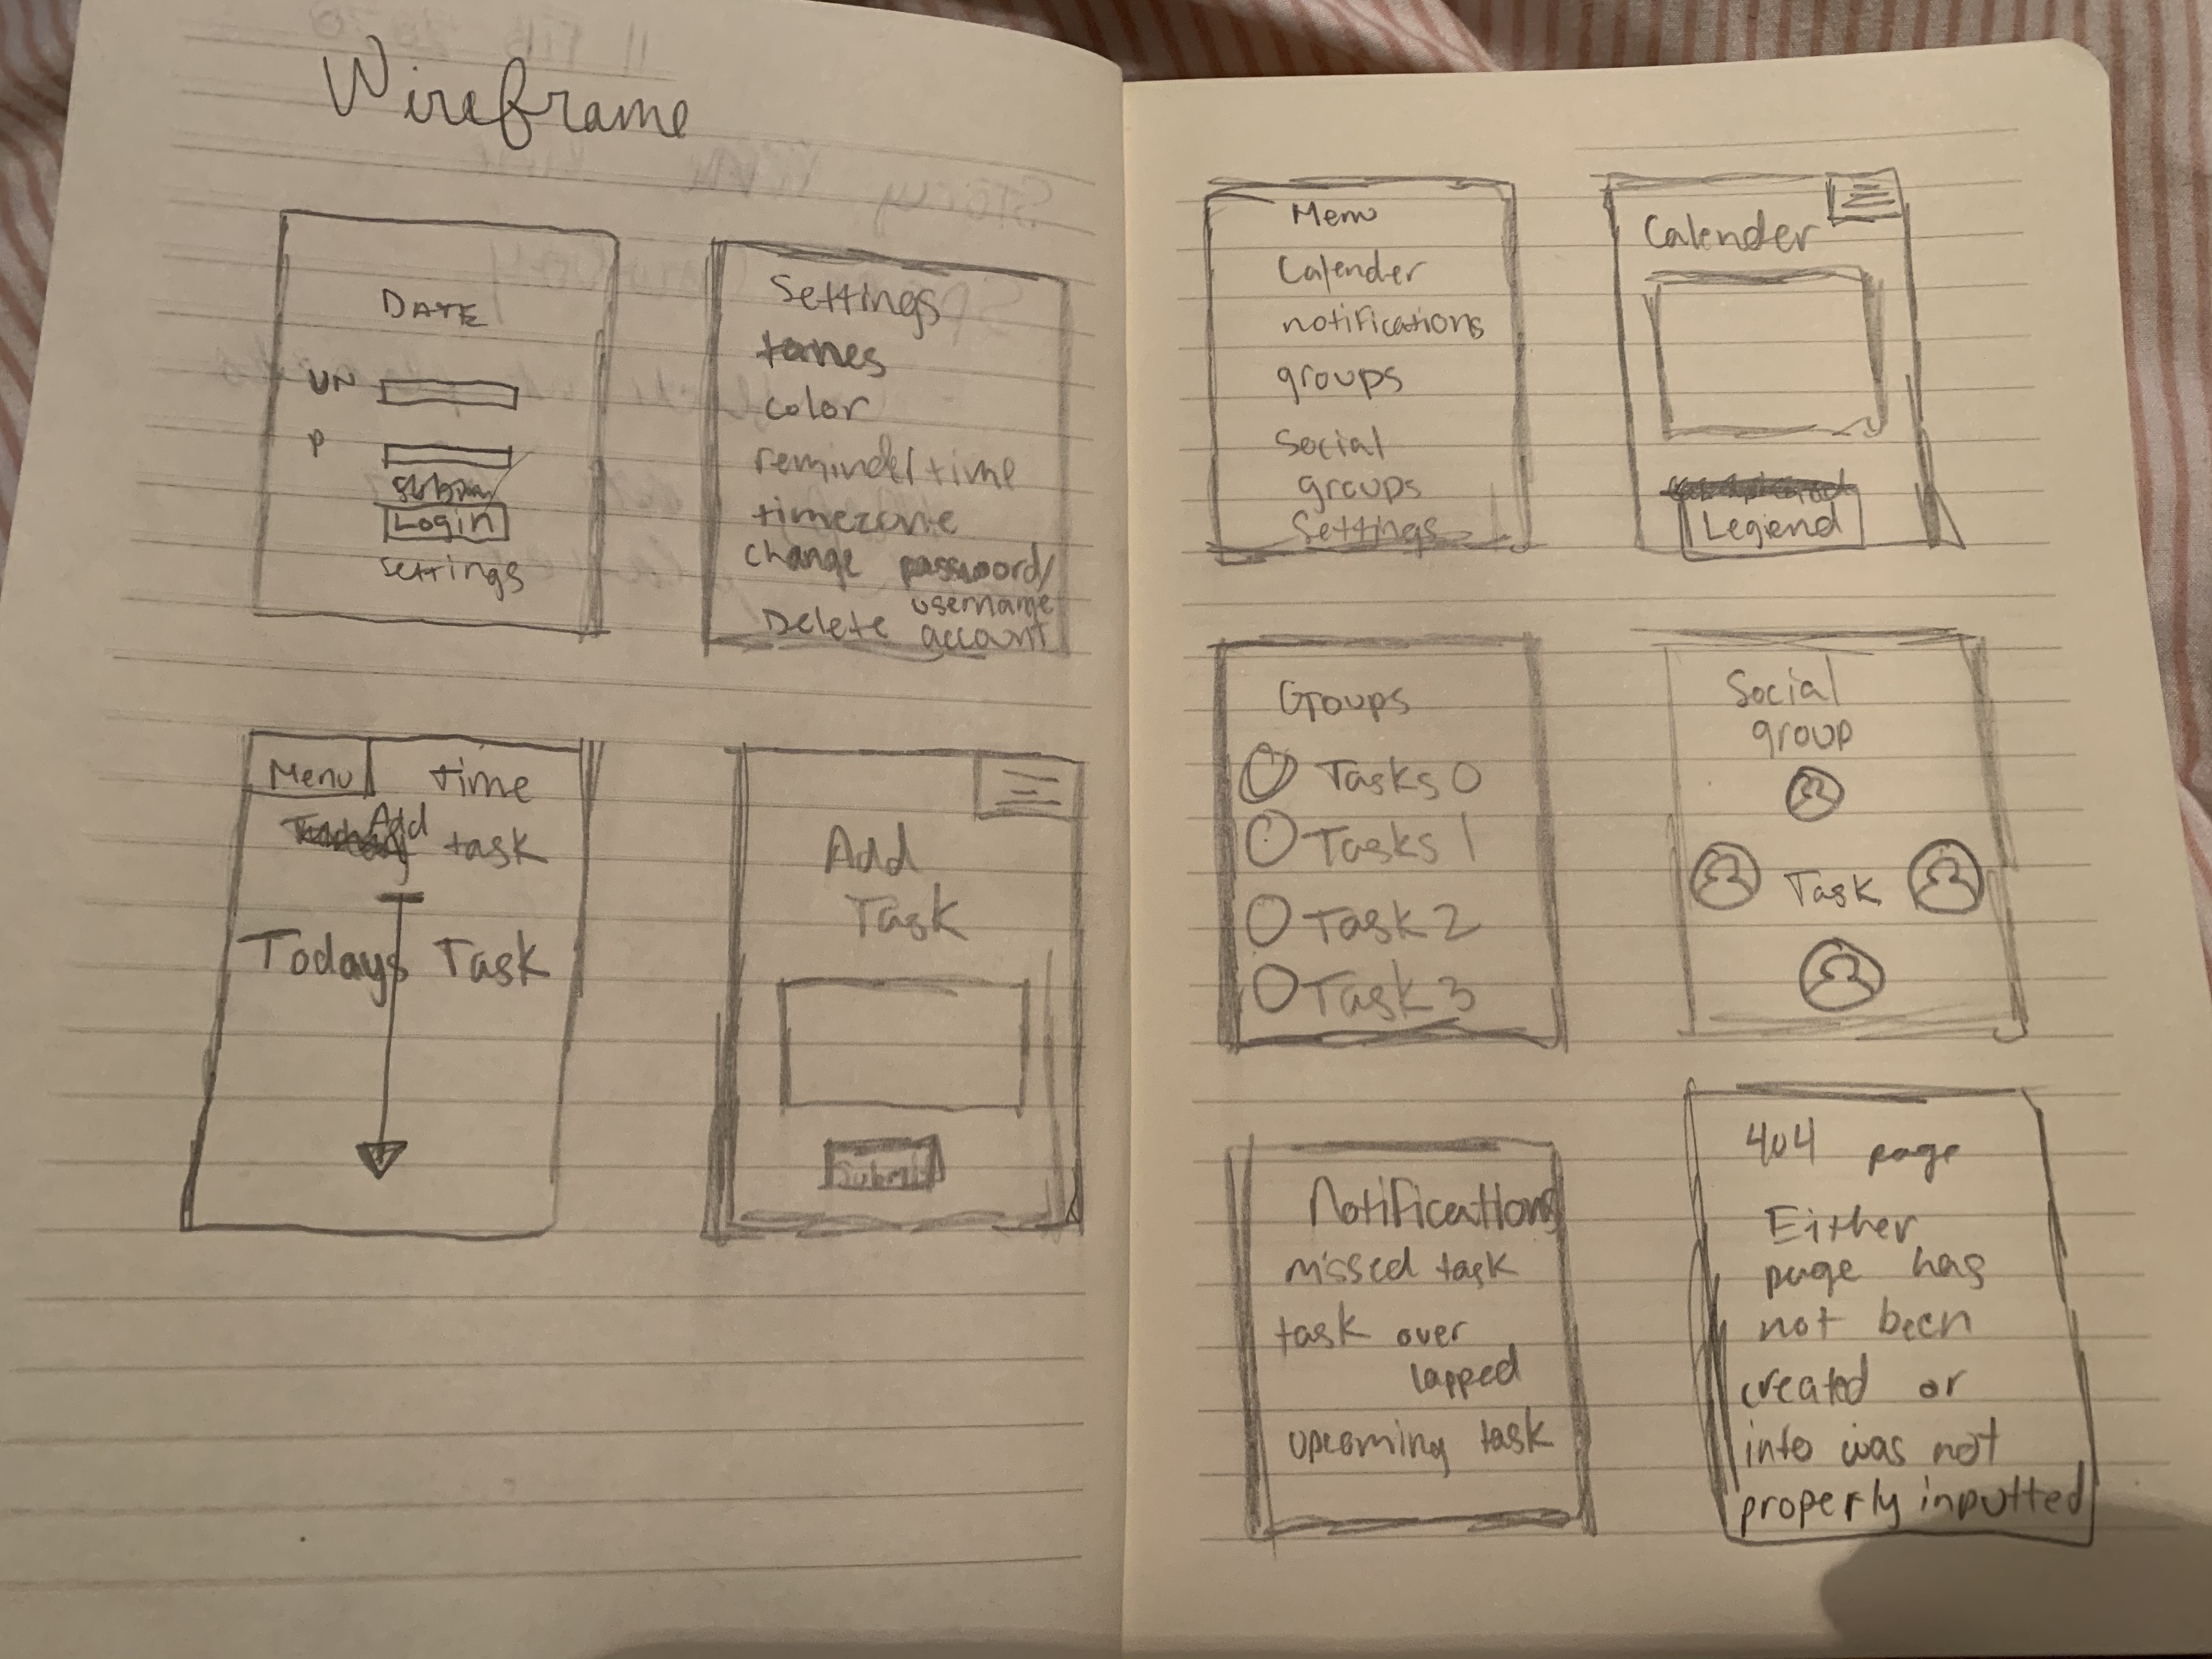 Wireframe
DATE
UN
P
Login
settings
Settings
tones
color
reminder/time
timezone
change password/
username
Delete account
Menu
time
Add task
Todays Task
Add
Task
Submit
Menu
Calender
notifications
groups
Social
groups
Settings
Calender
Legiend
Groups
Tasks 0
Tasks 1
Task 2
Task 3
Social
group
Task
Notifications
missed task
task over
lapped
upcoming task
404 page
Either
page has
not been
created or
info was not
properly inputted